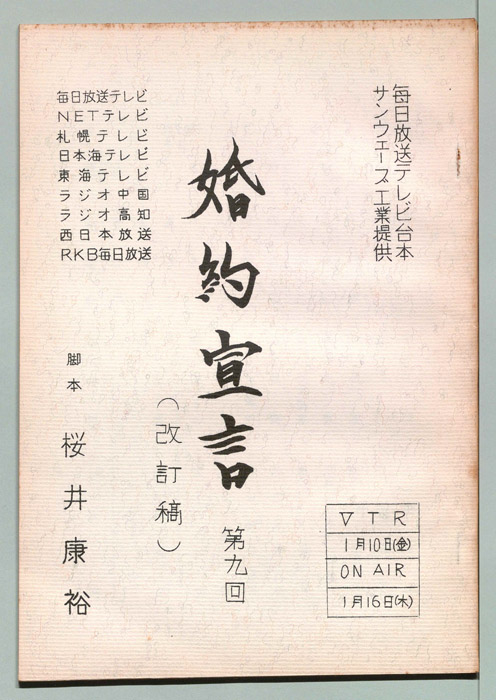 毎日放送テレビ台本
サンウェーブ工業提供
婚約宣言
(改訂稿)
第九回
毎日放送テレビ
NETテレビ
札幌テレビ
日本海テレビ
東海テレビ
ラジオ中国
ラジオ高知
西日本放送
RKB毎日放送
脚本
桜井康裕
VTR
1月10日(金)
ON AIR
1月16日(木)